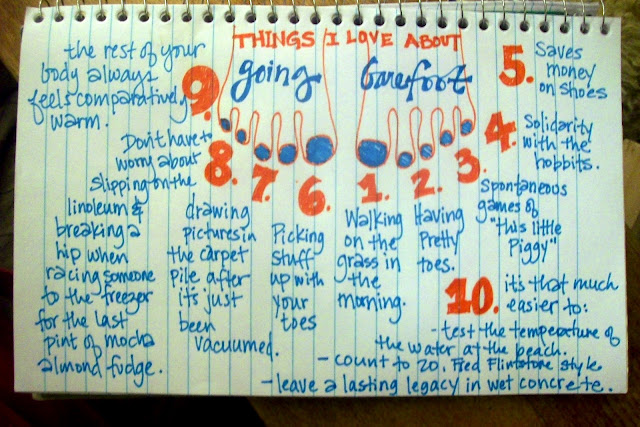 THINGS I LOVE ABOUT
going barefoot
1.
Walking
on the
grass in
the
morning.
2.
Having
Pretty
toes.
3.
Spontaneous
games of
"this little
Piggy"
4.
Solidarity
with the
hobbits.
5.
Saves
money
on shoes
6.
Picking
stuff
up with
your
toes
7.
drawing
pictures in
the carpet
pile after
it's just
been
vacuumed.
8.
Don't have to
worry about
slipping on the
linoleum &
breaking a
hip when
racing someone
to the freezer
for the last
pint of mocha
almond fudge.
9.
the rest of your
body always
feels comparatively
warm.
10.
it's that much
easier to:
- test the temperature of
the water at the beach.
- count to 20, Fred Flintstone style.
- leave a lasting legacy in wet concrete.